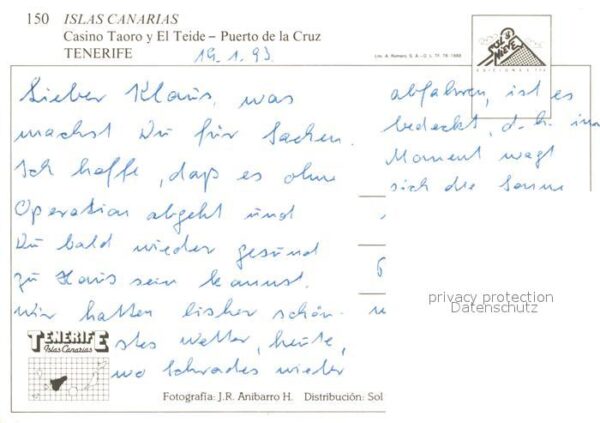 150 ISLAS CANARIAS
Casino Taoro y El Teide – Puerto de la Cruz
TENERIFE 19.1.93
Lit. A. Romero, S. A. - D. L. TF.
SOL Y NIEVE
EDICIONES
Lieber Klaus, was
machst Du für Sachen.
Ich hoffe, daß es ohne
Operation abgeht und
Du bald wieder gesund
zu Haus sein kannst.
Wir hatten bisher schön-
stes Wetter, heute,
wo Schrades wieder
abfahren, ist es
bedeckt, d.h. im
Moment wagt
sich die Sonne
privacy protection
Datenschutz
TENERIFE
Islas Canarias
Fotografía: J.R. Anibarro H. Distribución: Sol